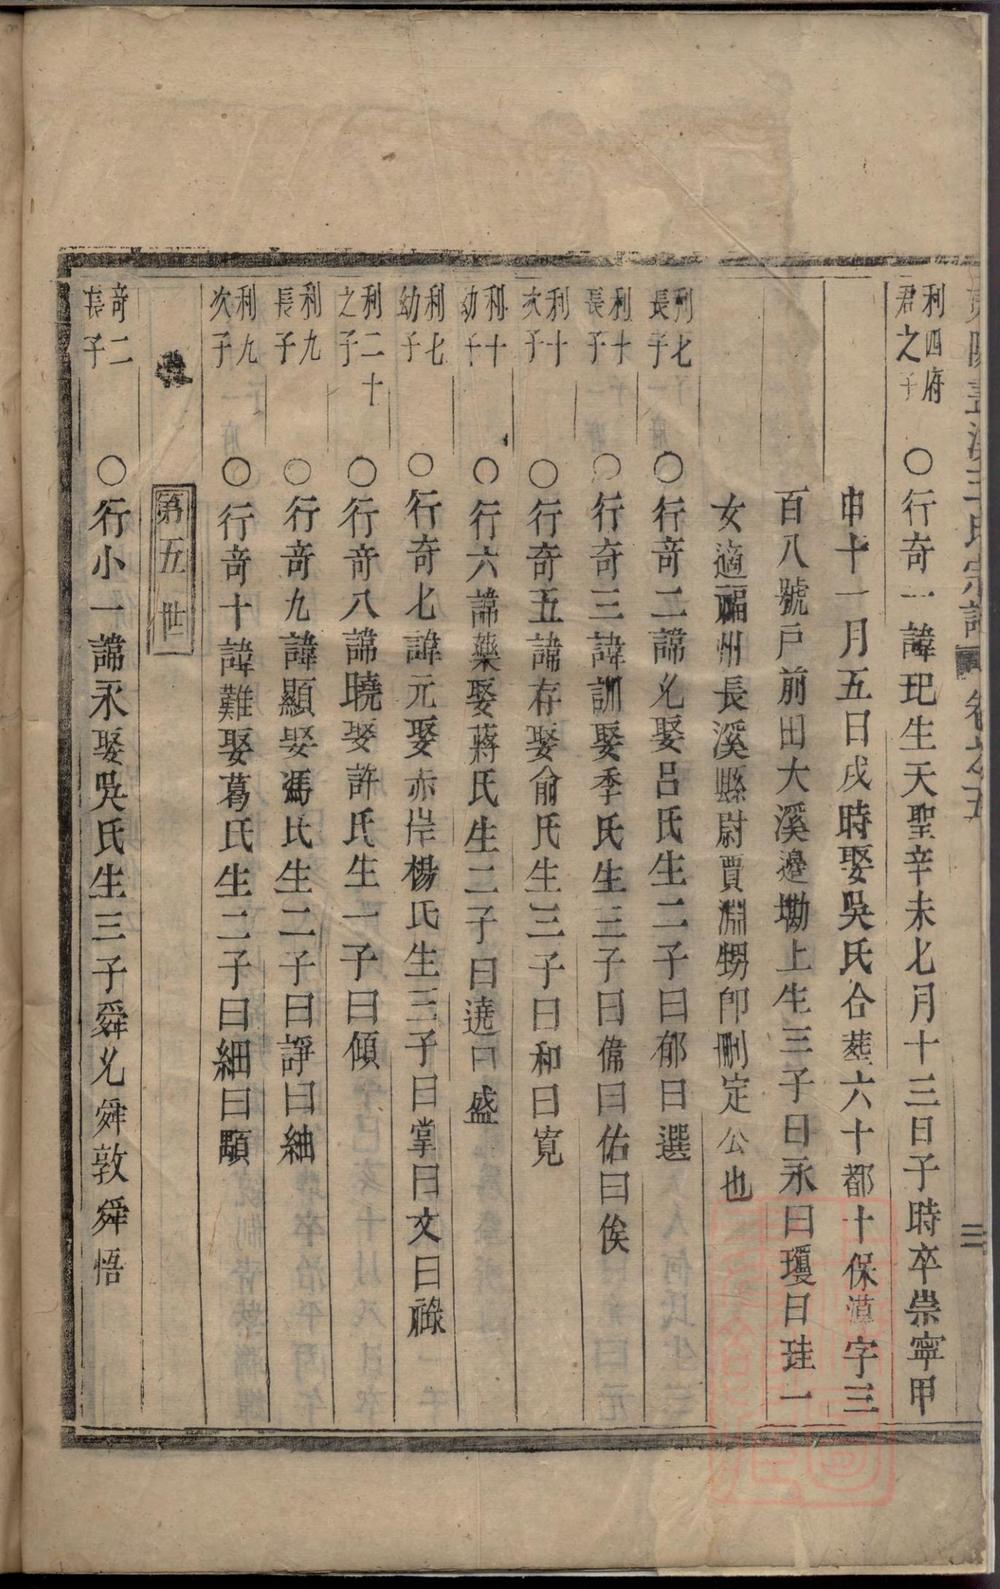 利四府君之子
○行奇一諱玘生天聖辛未七月十三日子時卒崇寧甲
申十一月五日戌時娶吳氏合塟六十都十保萫字三
百八號戶前田大溪邉塸上生三子曰永曰瓊曰珪一
女適福州長溪縣尉賈淵甥卽刪定公也
利七長子
○行奇二諱兊娶呂氏生二子曰郁曰選
利十長子
○行奇三諱訓娶季氏生三子曰偉曰佑曰俟
利十次子
○行奇五諱存娶俞氏生三子曰和曰寛
利十幼子
○行六諱藥娶蔣氏生二子曰遶曰盛
利七幼子
○行奇七諱元娶赤岸楊氏生三子曰掌曰文曰祿
利二十之子
○行奇八諱曉娶許氏生一子曰傾
利九長子
○行奇九諱顯娶馮氏生二子曰諍曰紬
利九次子
○行奇十諱難娶葛氏生二子曰細曰顒
第五世
奇二長子
○行小一諱永娶吳氏生三子舜兊舜敦舜悟